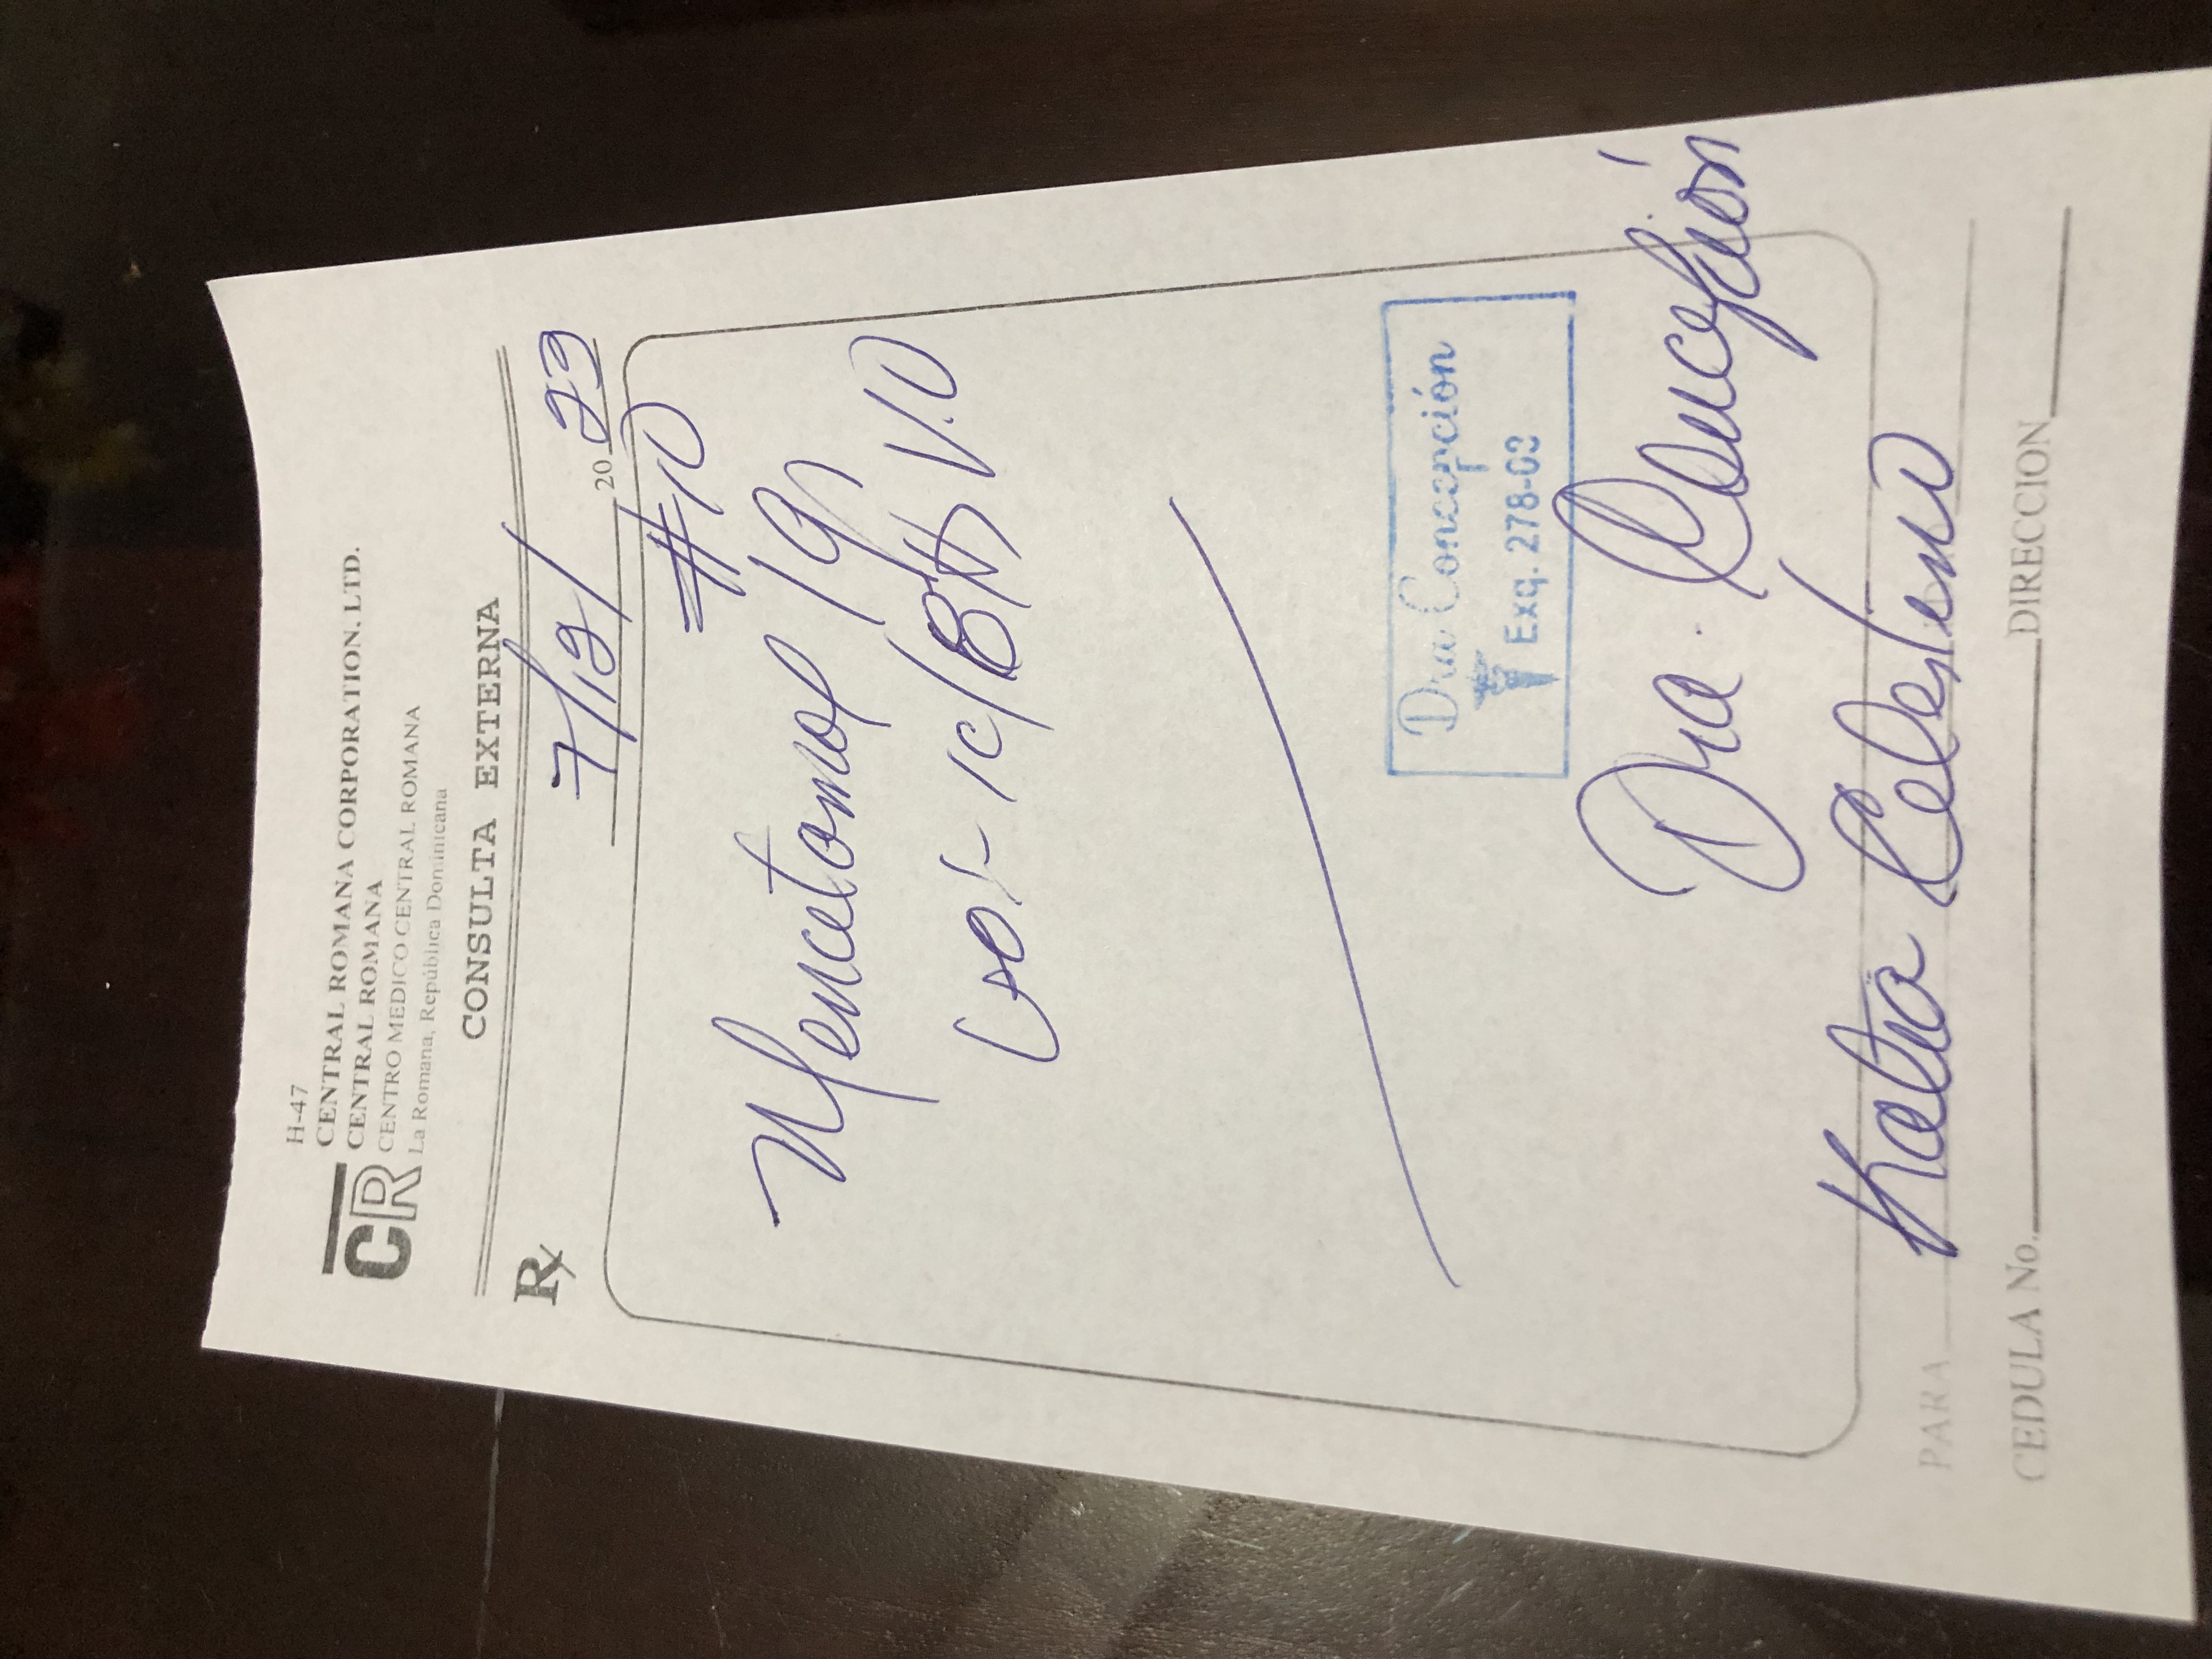 H-47
CR
CENTRAL ROMANA CORPORATION, LTD.
CENTRAL ROMANA
CENTRO MEDICO CENTRAL ROMANA
La Romana, República Dominicana
CONSULTA EXTERNA
Rx
7/12/ 20 23
#10
1 gr
1 c/8 Hs V.O
Dra Concepción
Exq. 278-03
Dra. Concepción
PARA Katia Celestino
CEDULA No. DIRECCION